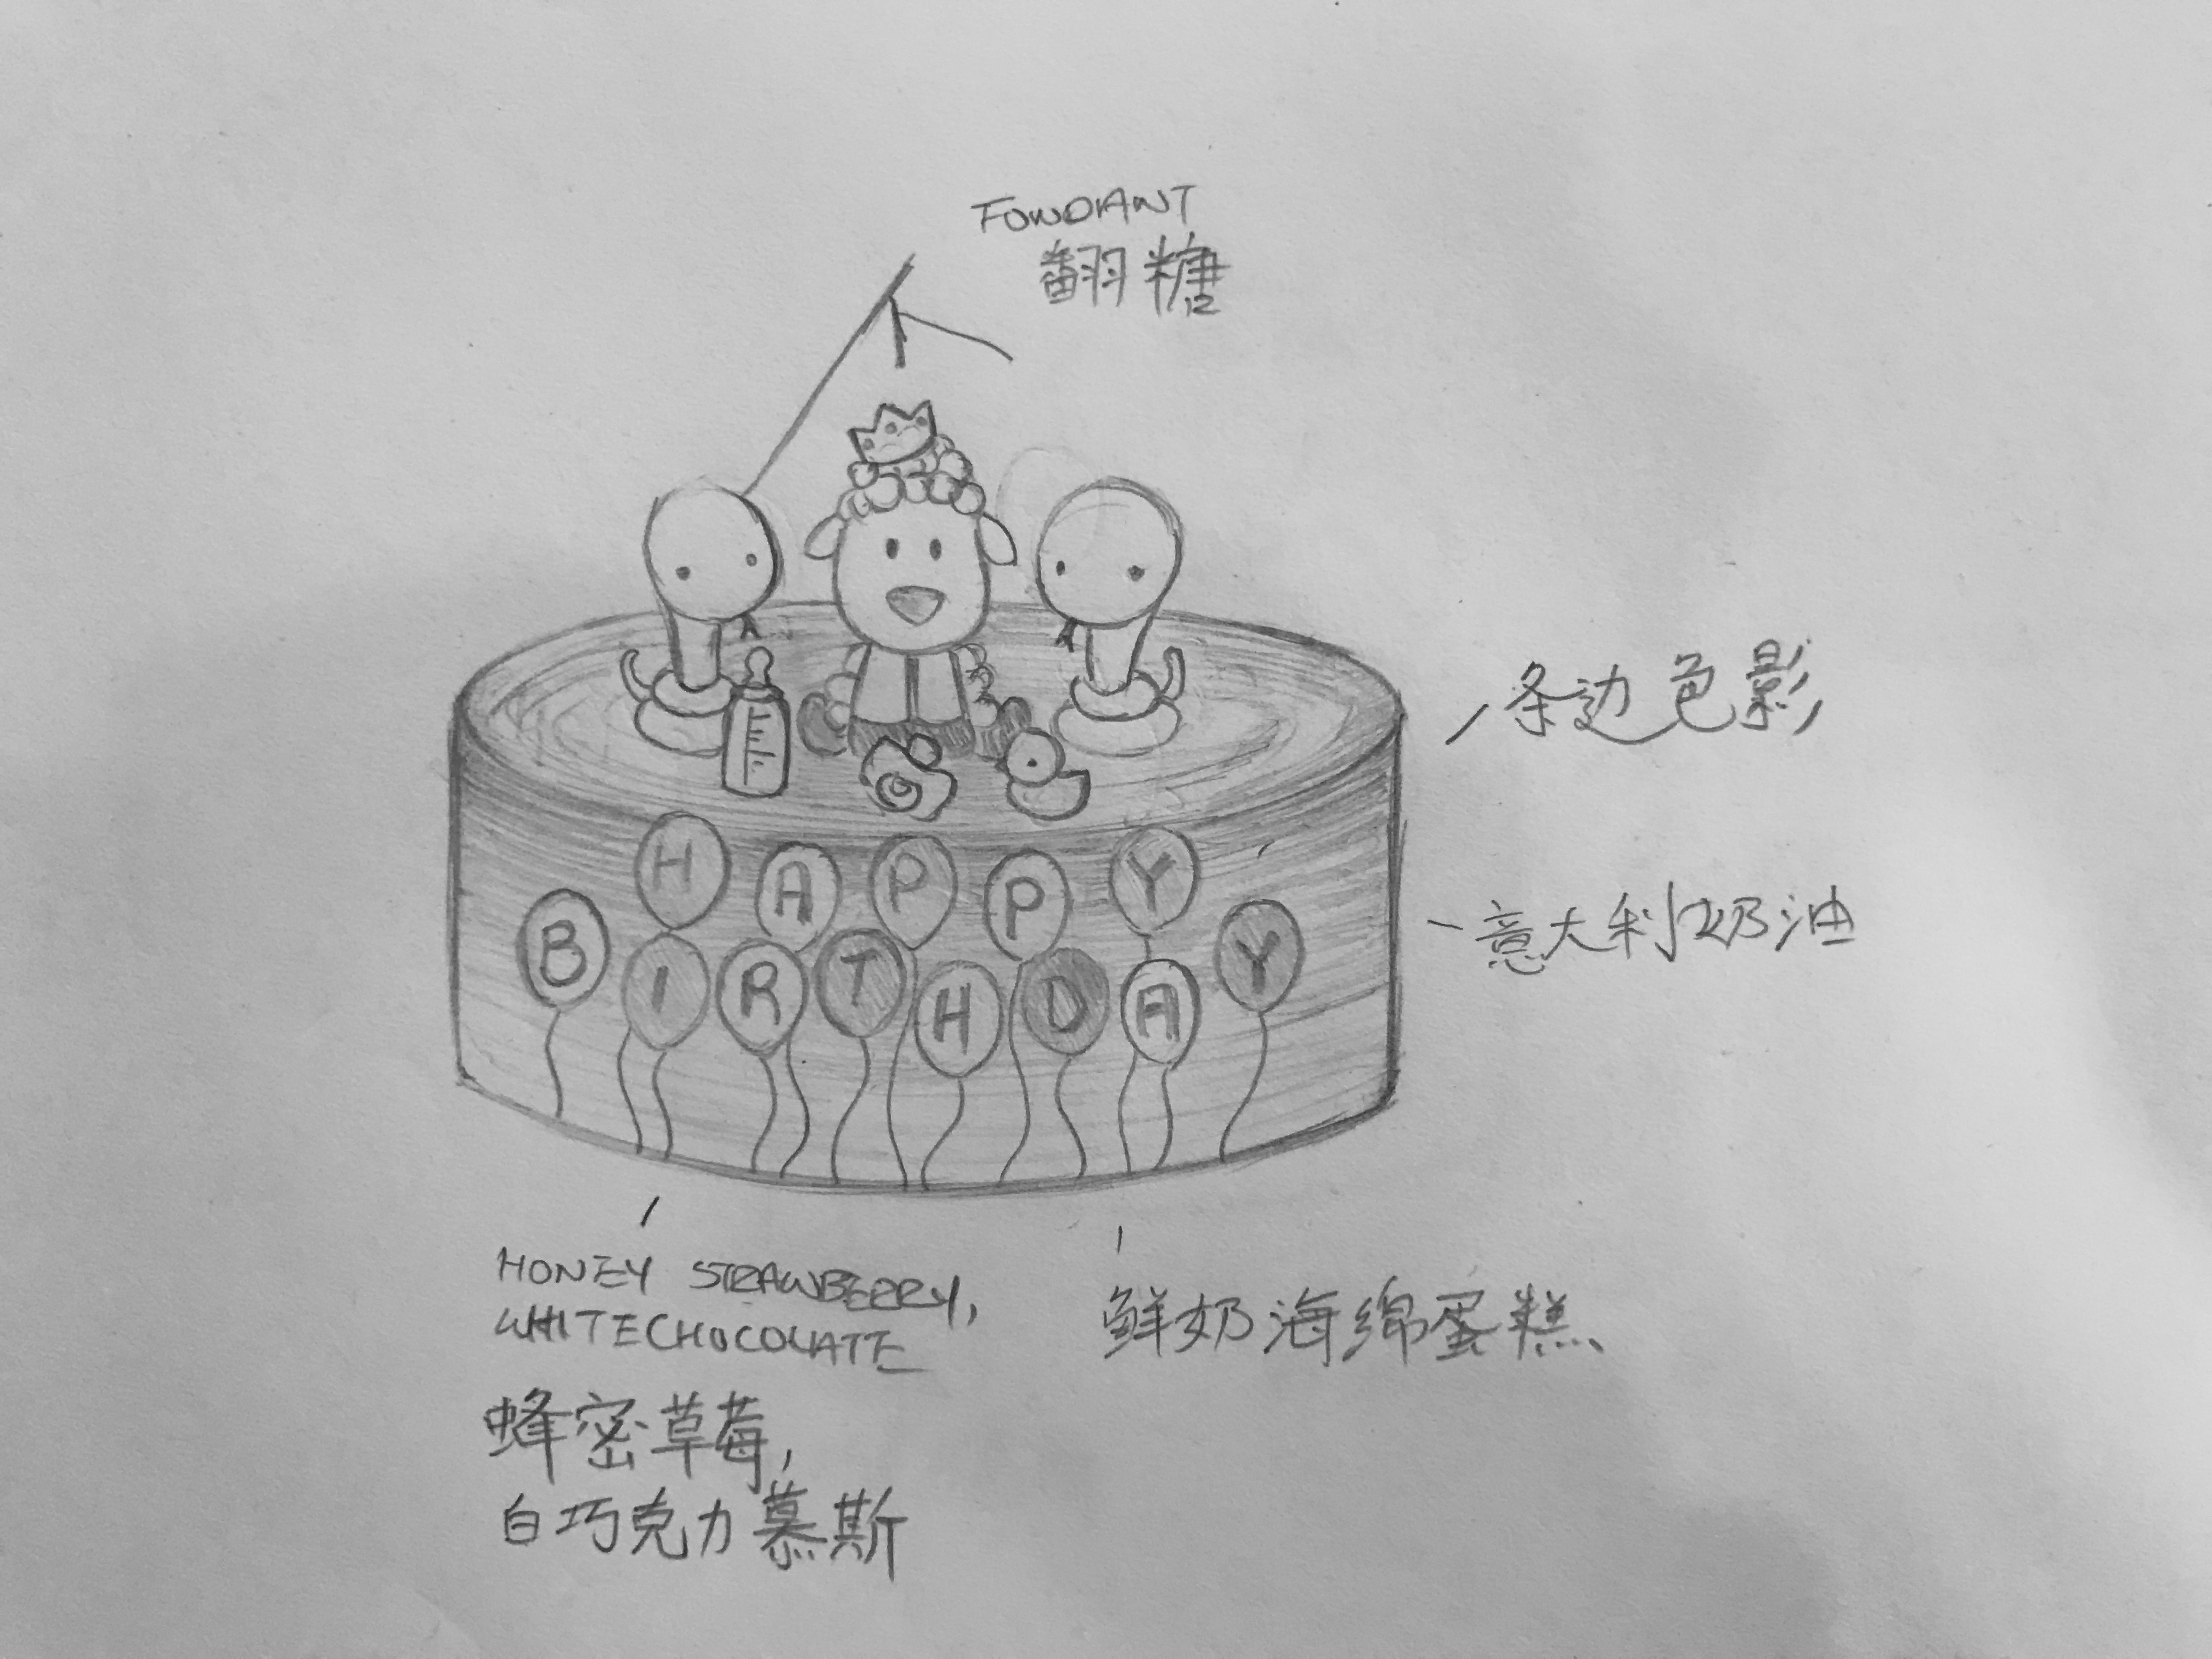 FONDANT
翻糖
条边色影
意大利奶油
HAPPY
BIRTHDAY
HONEY STRAWBERRY,
WHITECHOCOLATE
蜂密草莓,
白巧克力慕斯
鲜奶海绵蛋糕